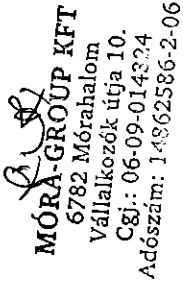 MÓRA-GROUP KFT
6782 Mórahalom
Vállalkozók útja 10.
Cgj.: 06-09-014324
Adószám: 14862586-2-06